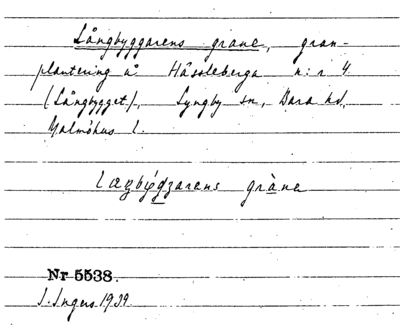 Långbyggarens grane, gran-
plantering å Hässleberga n:r 4
(Långbygget), Lyngby sn, Bara hd,
Malmöhus l.
gràna
Nr 5538.
I. Ingers 1939